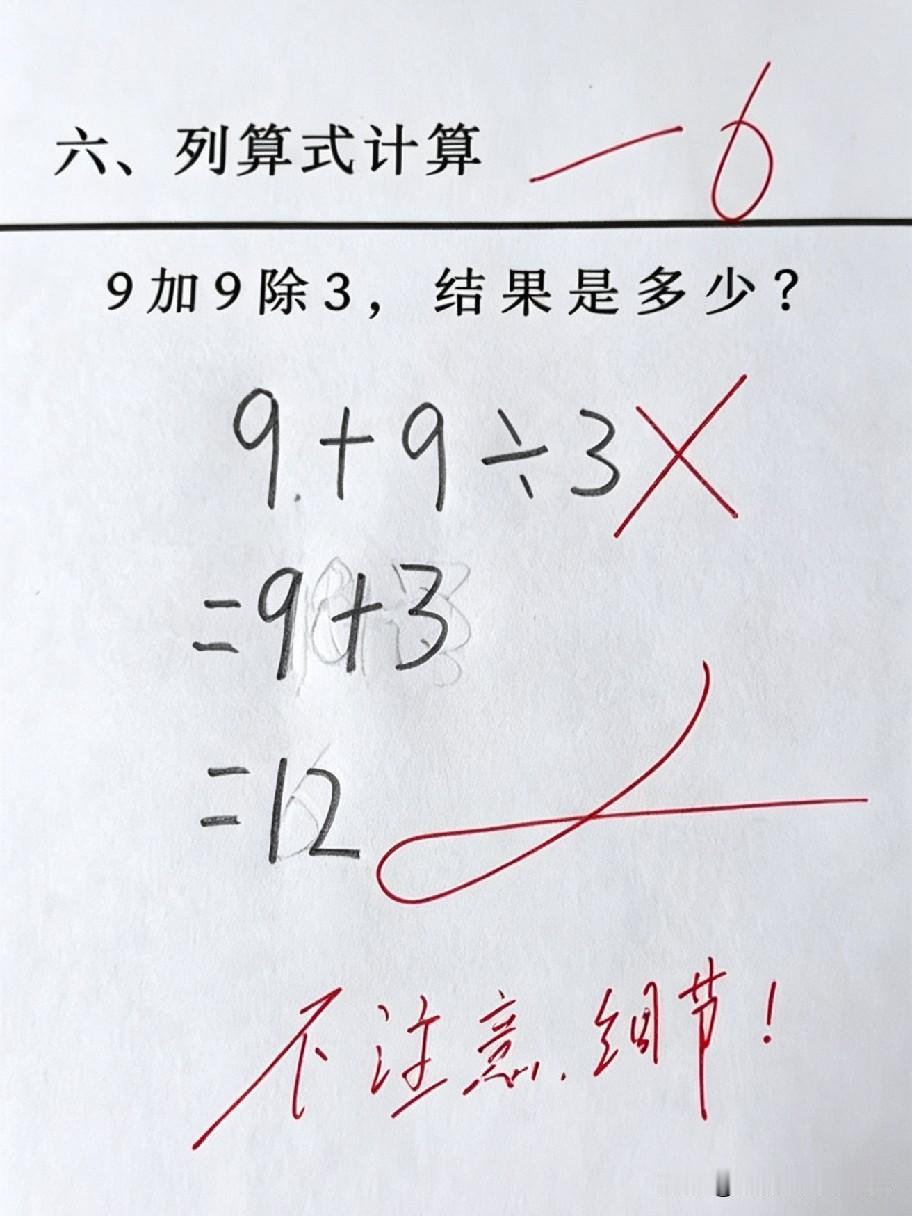 六、列算式计算 -6
9加9除3，结果是多少？
9+9÷3
=9+3
=12
不注意细节！